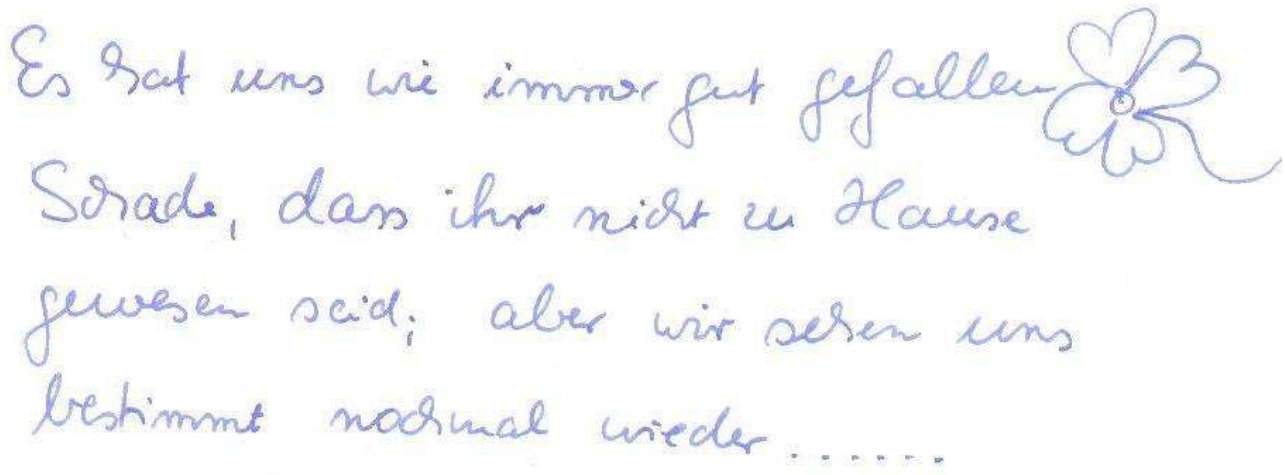 Es hat uns wie immer gut gefallen
Schade, dass ihr nicht zu Hause
gewesen seid; aber wir sehen uns
bestimmt nochmal wieder......